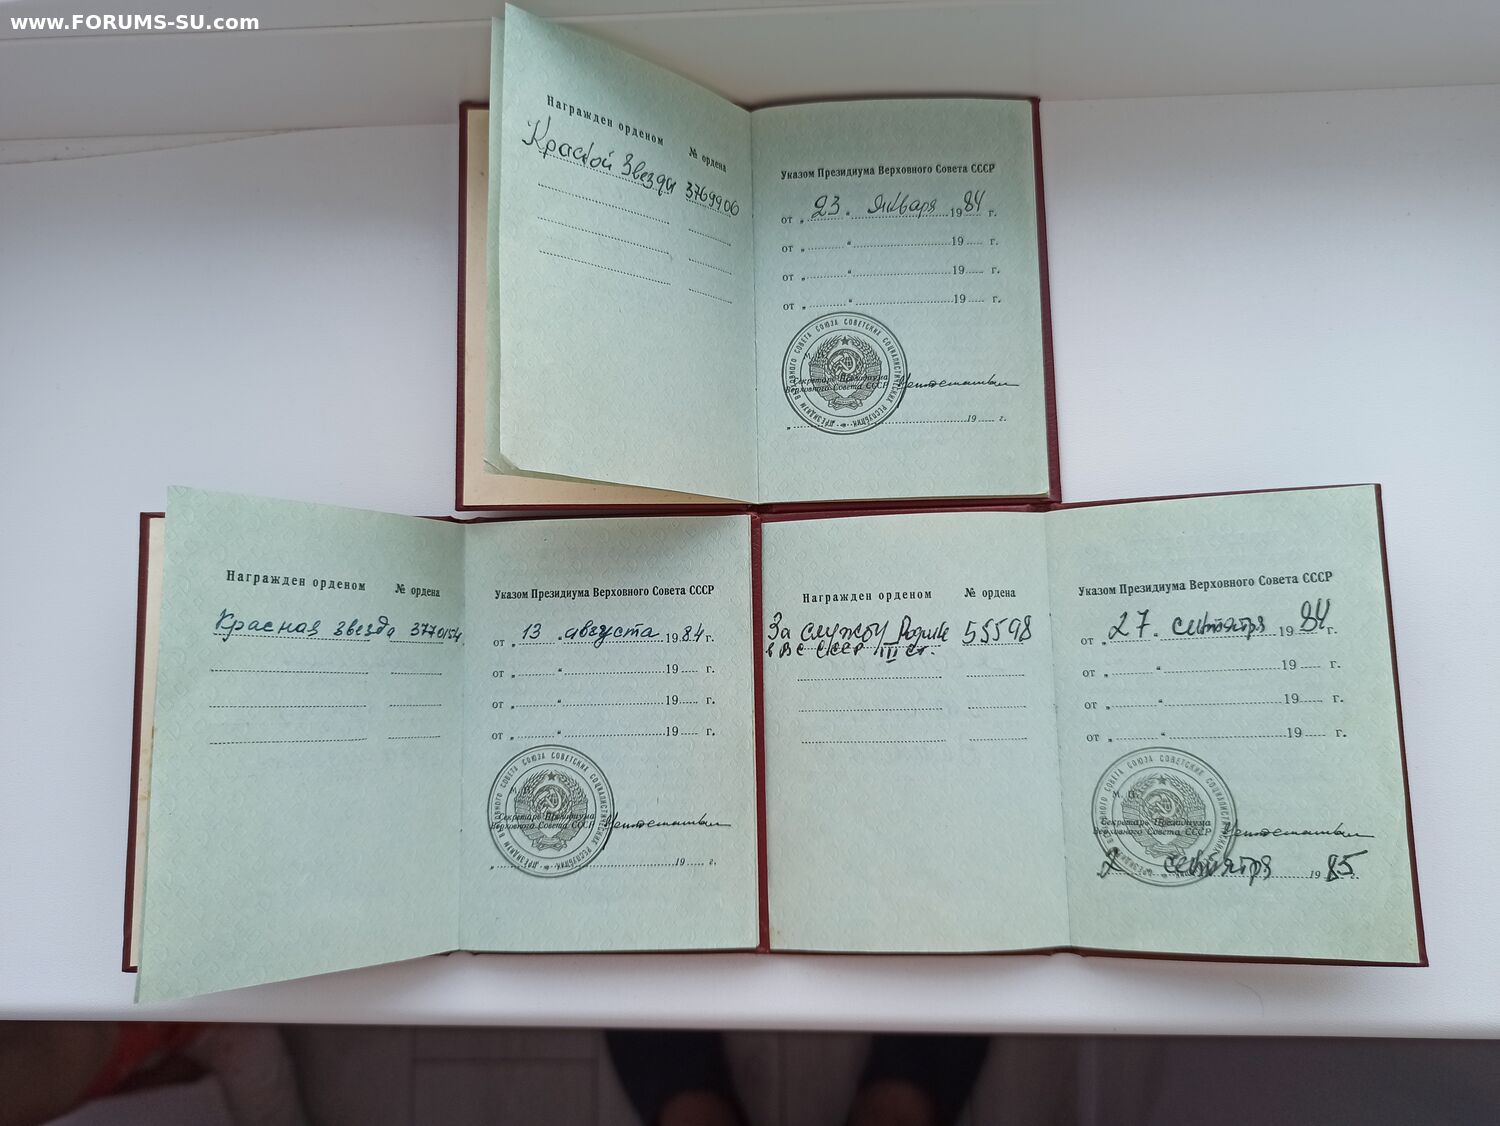 www.FORUMS-SU.com
Награжден орденом № ордена
Красной Звезды 3769906
Указом Президиума Верховного Совета СССР
от „ 23 “ января 1984 г.
от „ “ 19 г.
от „ “ 19 г.
от „ “ 19 г.
ПРЕЗИДИУМ ВЕРХОВНОГО СОВЕТА СОЮЗА СОВЕТСКИХ СОЦИАЛИСТИЧЕСКИХ РЕСПУБЛИК
Секретарь Президиума
Верховного Совета СССР
„ 19 г.
Награжден орденом № ордена
Красная звезда 3770154
Указом Президиума Верховного Совета СССР
от „ 13 “ августа 1984 г.
от „ “ 19 г.
от „ “ 19 г.
от „ “ 19 г.
ПРЕЗИДИУМ ВЕРХОВНОГО СОВЕТА СОЮЗА СОВЕТСКИХ СОЦИАЛИСТИЧЕСКИХ РЕСПУБЛИК
М. П.
Секретарь Президиума
Верховного Совета СССР
„ 19 г.
Награжден орденом № ордена
За службу Родине 55598
в ВС СССР III ст.
Указом Президиума Верховного Совета СССР
от „ 27 “ сентября 1984 г.
от „ “ 19 г.
от „ “ 19 г.
от „ “ 19 г.
ПРЕЗИДИУМ ВЕРХОВНОГО СОВЕТА СОЮЗА СОВЕТСКИХ СОЦИАЛИСТИЧЕСКИХ
М. П.
Секретарь Президиума
Верховного Совета СССР
2 сентября 1985 г.